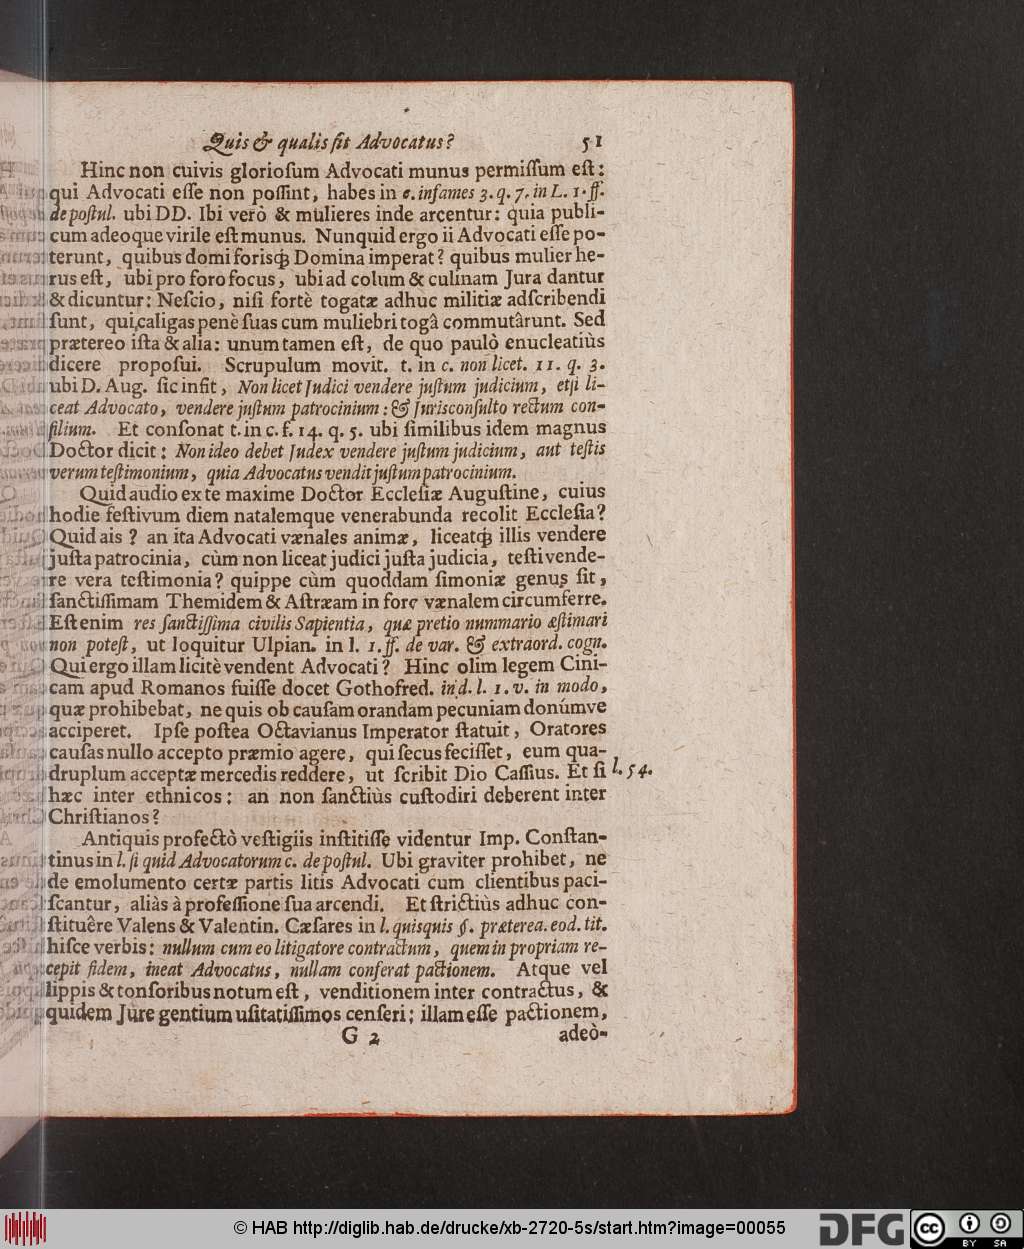 Quis & qualis ſit Advocatus? 51
Hinc non cuivis glorioſum Advocati munus permiſſum eſt:
qui Advocati eſſe non poſſint, habes in c. infames 3. q. 7. in L. 1. ff.
de poſtul. ubi DD. Ibi verò & mulieres inde arcentur: quia publi-
cum adeoque virile eſt munus. Nunquid ergo ii Advocati eſſe po-
terunt, quibus domi forisq; Domina imperat? quibus mulier he-
rus eſt, ubi pro foro focus, ubi ad colum & culinam Jura dantur
& dicuntur: Neſcio, niſi fortè togatæ adhuc militiæ adſcribendi
ſunt, qui caligas penè ſuas cum muliebri togâ commutârunt. Sed
prætereo iſta & alia: unum tamen eſt, de quo paulò enucleatiùs
dicere propoſui. Scrupulum movit. t. in c. non licet. 11. q. 3.
ubi D. Aug. ſic infit, Non licet Judici vendere juſtum judicium, etſi li-
ceat Advocato, vendere juſtum patrocinium: & Jurisconſulto rectum con-
ſilium. Et conſonat t. in c. f. 14. q. 5. ubi ſimilibus idem magnus
Doctor dicit: Non ideo debet Judex vendere juſtum judicium, aut teſtis
verum teſtimonium, quia Advocatus vendit juſtum patrocinium.
Quid audio ex te maxime Doctor Eccleſiæ Auguſtine, cuius
hodie feſtivum diem natalemque venerabunda recolit Eccleſia?
Quid ais? an ita Advocati vænales animæ, liceatq; illis vendere
juſta patrocinia, cùm non liceat judici juſta judicia, teſti vende-
re vera teſtimonia? quippe cùm quoddam ſimoniæ genus ſit,
ſanctiſſimam Themidem & Aſtræam in foro vænalem circumferre.
Eſt enim res ſanctiſſima civilis Sapientia, quæ pretio nummario æſtimari
non poteſt, ut loquitur Ulpian. in l. 1. ff. de var. & extraord. cogn.
Qui ergo illam licitè vendent Advocati? Hinc olim legem Cini-
cam apud Romanos fuiſſe docet Gothofred. in d. l. 1. v. in modo,
quæ prohibebat, ne quis ob cauſam orandam pecuniam donúmve
acciperet. Ipſe poſtea Octavianus Imperator ſtatuit, Oratores
cauſas nullo accepto præmio agere, qui ſecus feciſſet, eum qua-
druplum acceptæ mercedis reddere, ut ſcribit Dio Caſſius. Et ſi l. 54.
hæc inter ethnicos: an non ſanctiùs cuſtodiri deberent inter
Chriſtianos?
Antiquis profectò veſtigiis inſtitiſſe videntur Imp. Conſtan-
tinus in l. ſi quid Advocatorum c. de poſtul. Ubi graviter prohibet, ne
de emolumento certæ partis litis Advocati cum clientibus paci-
ſcantur, aliàs à profeſſione ſua arcendi. Et ſtrictiùs adhuc con-
ſtituêre Valens & Valentin. Cæſares in l. quisquis §. præterea. eod. tit.
hiſce verbis: nullum cum eo litigatore contractum, quem in propriam re-
cepit fidem, ineat Advocatus, nullam conferat pactionem. Atque vel
lippis & tonſoribus notum eſt, venditionem inter contractus, &
quidem Jure gentium uſitatiſſimos cenſeri; illam eſſe pactionem,
G 2 adeò-
© HAB http://diglib.hab.de/drucke/xb-2720-5s/start.htm?image=00055
DFG
cc
BY SA